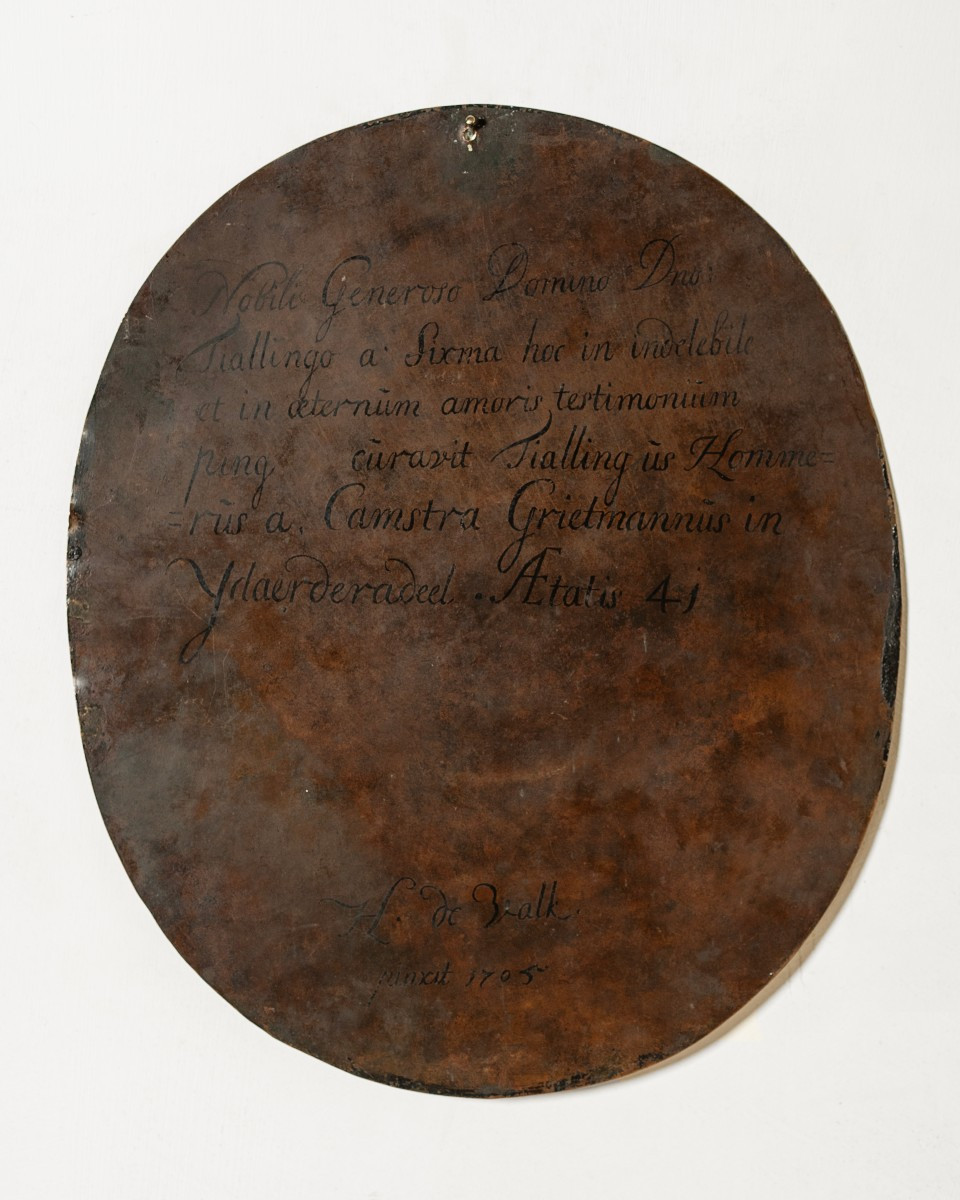 Nobili Generoso Domino Dno:
Tiallingo a: Sixma hoc in indelebile
et in æternŭm amoris testimoniŭm
ping cŭravit Tiallingŭs Homme=
=rŭs a. Camstra Grietmannŭs in
Ydaerderadeel. Ætatis 41
H. de Valk.
pinxit 1705